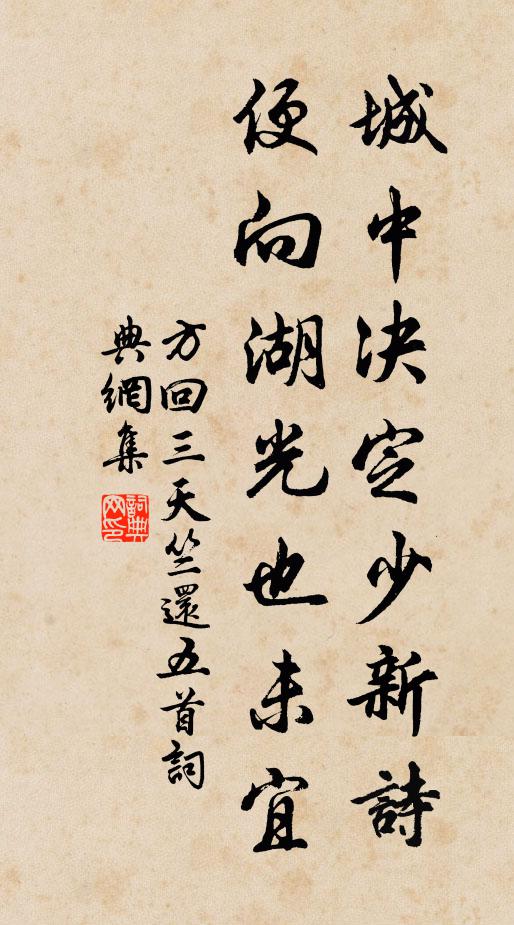 城中决定少新詩
便向湖光也未宜
方回三天竺還五首詞
典網集
詞典网印